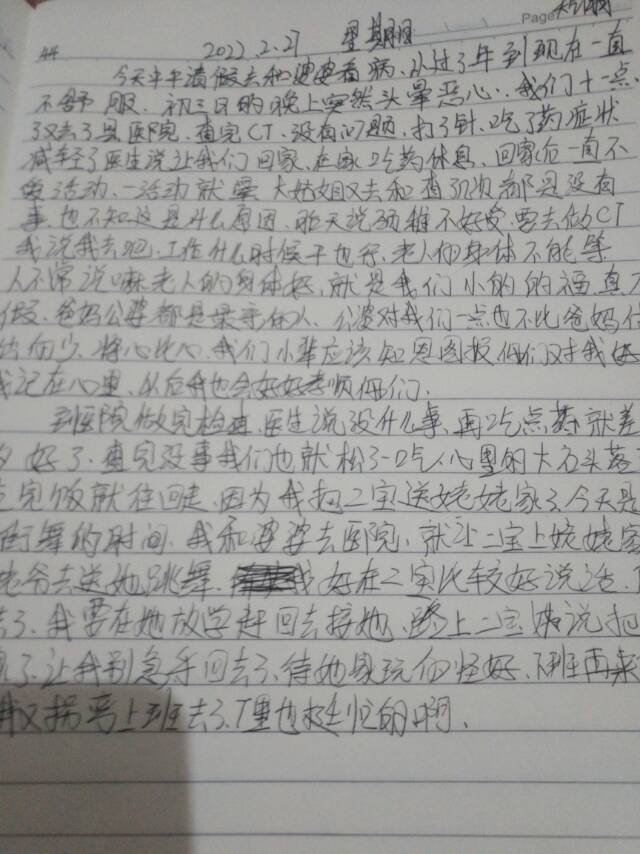 Page
44 2022.2.27 星期日
今天半平请假去和婆婆看病,从过了年到现在一直
不舒服.初三日的晚上突然头晕恶心..我们十一点
了又去了县医院,查完CT.没有问题,打了针.吃了药症状
减轻了医生说让我们回家.在家吃药休息.回家后一直不
活动、一活动就晕 大姑姐又去和看了几次都是没有
事.也不知这是什么原因.昨天说颈椎不好受.要去做CT
我说我去吧.工作什么时候干也行.老人的身体不能等
人不常说嘛老人的身体好,就是我们小的的福真不
假.爸妈公婆都是亲手的人.公婆对我们一点也不比爸妈付
出的少.将心比心.我们小辈应该知恩图报他们对我好
我记在心里.以后我也会好好孝顺他们.
到医院做完检查.医生说没什么事.再吃点药就差
好了.查完没事我们也就松了一口气.心里的大石头落
完饭就往回走.因为我把二宝送姥姥家了.今天是
街舞的时间.我和婆婆去医院,就让二宝上姥姥家
姥爷去送她跳舞.好在二宝比较好说话.
去了.我要在她放学赶回去接她.路上二宝说把
了.让我别急于回去了.待她家玩的怪好.
我又拐弯上班去了.厂里也挺忙的啊.